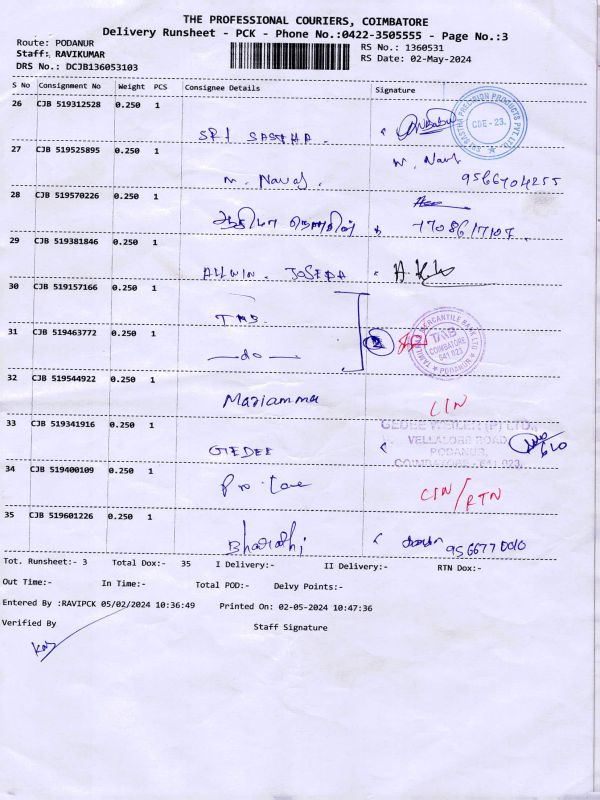 THE PROFESSIONAL COURIERS, COIMBATORE
Delivery Runsheet - PCK - Phone No.:0422-3505555 - Page No.:3
Route: PODANUR
RS No.: 1360531
Staff: RAVIKUMAR
RS Date: 02-May-2024
DRS No.: DCJB136053103
S No Consignment No Weight PCS Consignee Details Signature
26 CJB 519312528 0.250 1
SRI SASTHA.
CBE - 23.
27 CJB 519525895 0.250 1
M. Navas.
9566704255
28 CJB 519570226 0.250 1
29 CJB 519381846 0.250 1
ALLWIN. JOSEPH
30 CJB 519157166 0.250 1
TMB
31 CJB 519463772 0.250 1
—do—
TAMIL MERCANTILE BANK LTD
TMB
COIMBATORE
641 023
PODANUR
32 CJB 519544922 0.250 1
Mariamma
CIN
33 CJB 519341916 0.250 1
GEDEE
GEDEE WEILER (P) LTD.,
VELLALORE ROAD
PODANUR,
COIMBATORE - 641 023.
34 CJB 519400109 0.250 1
CIN/RTN
35 CJB 519601226 0.250 1
Bharathi
Tot. Runsheet:- 3 Total Dox:- 35 I Delivery:- II Delivery:- RTN Dox:-
Out Time:- In Time:- Total POD:- Delvy Points:-
Entered By :RAVIPCK 05/02/2024 10:36:49 Printed On: 02-05-2024 10:47:36
Verified By Staff Signature